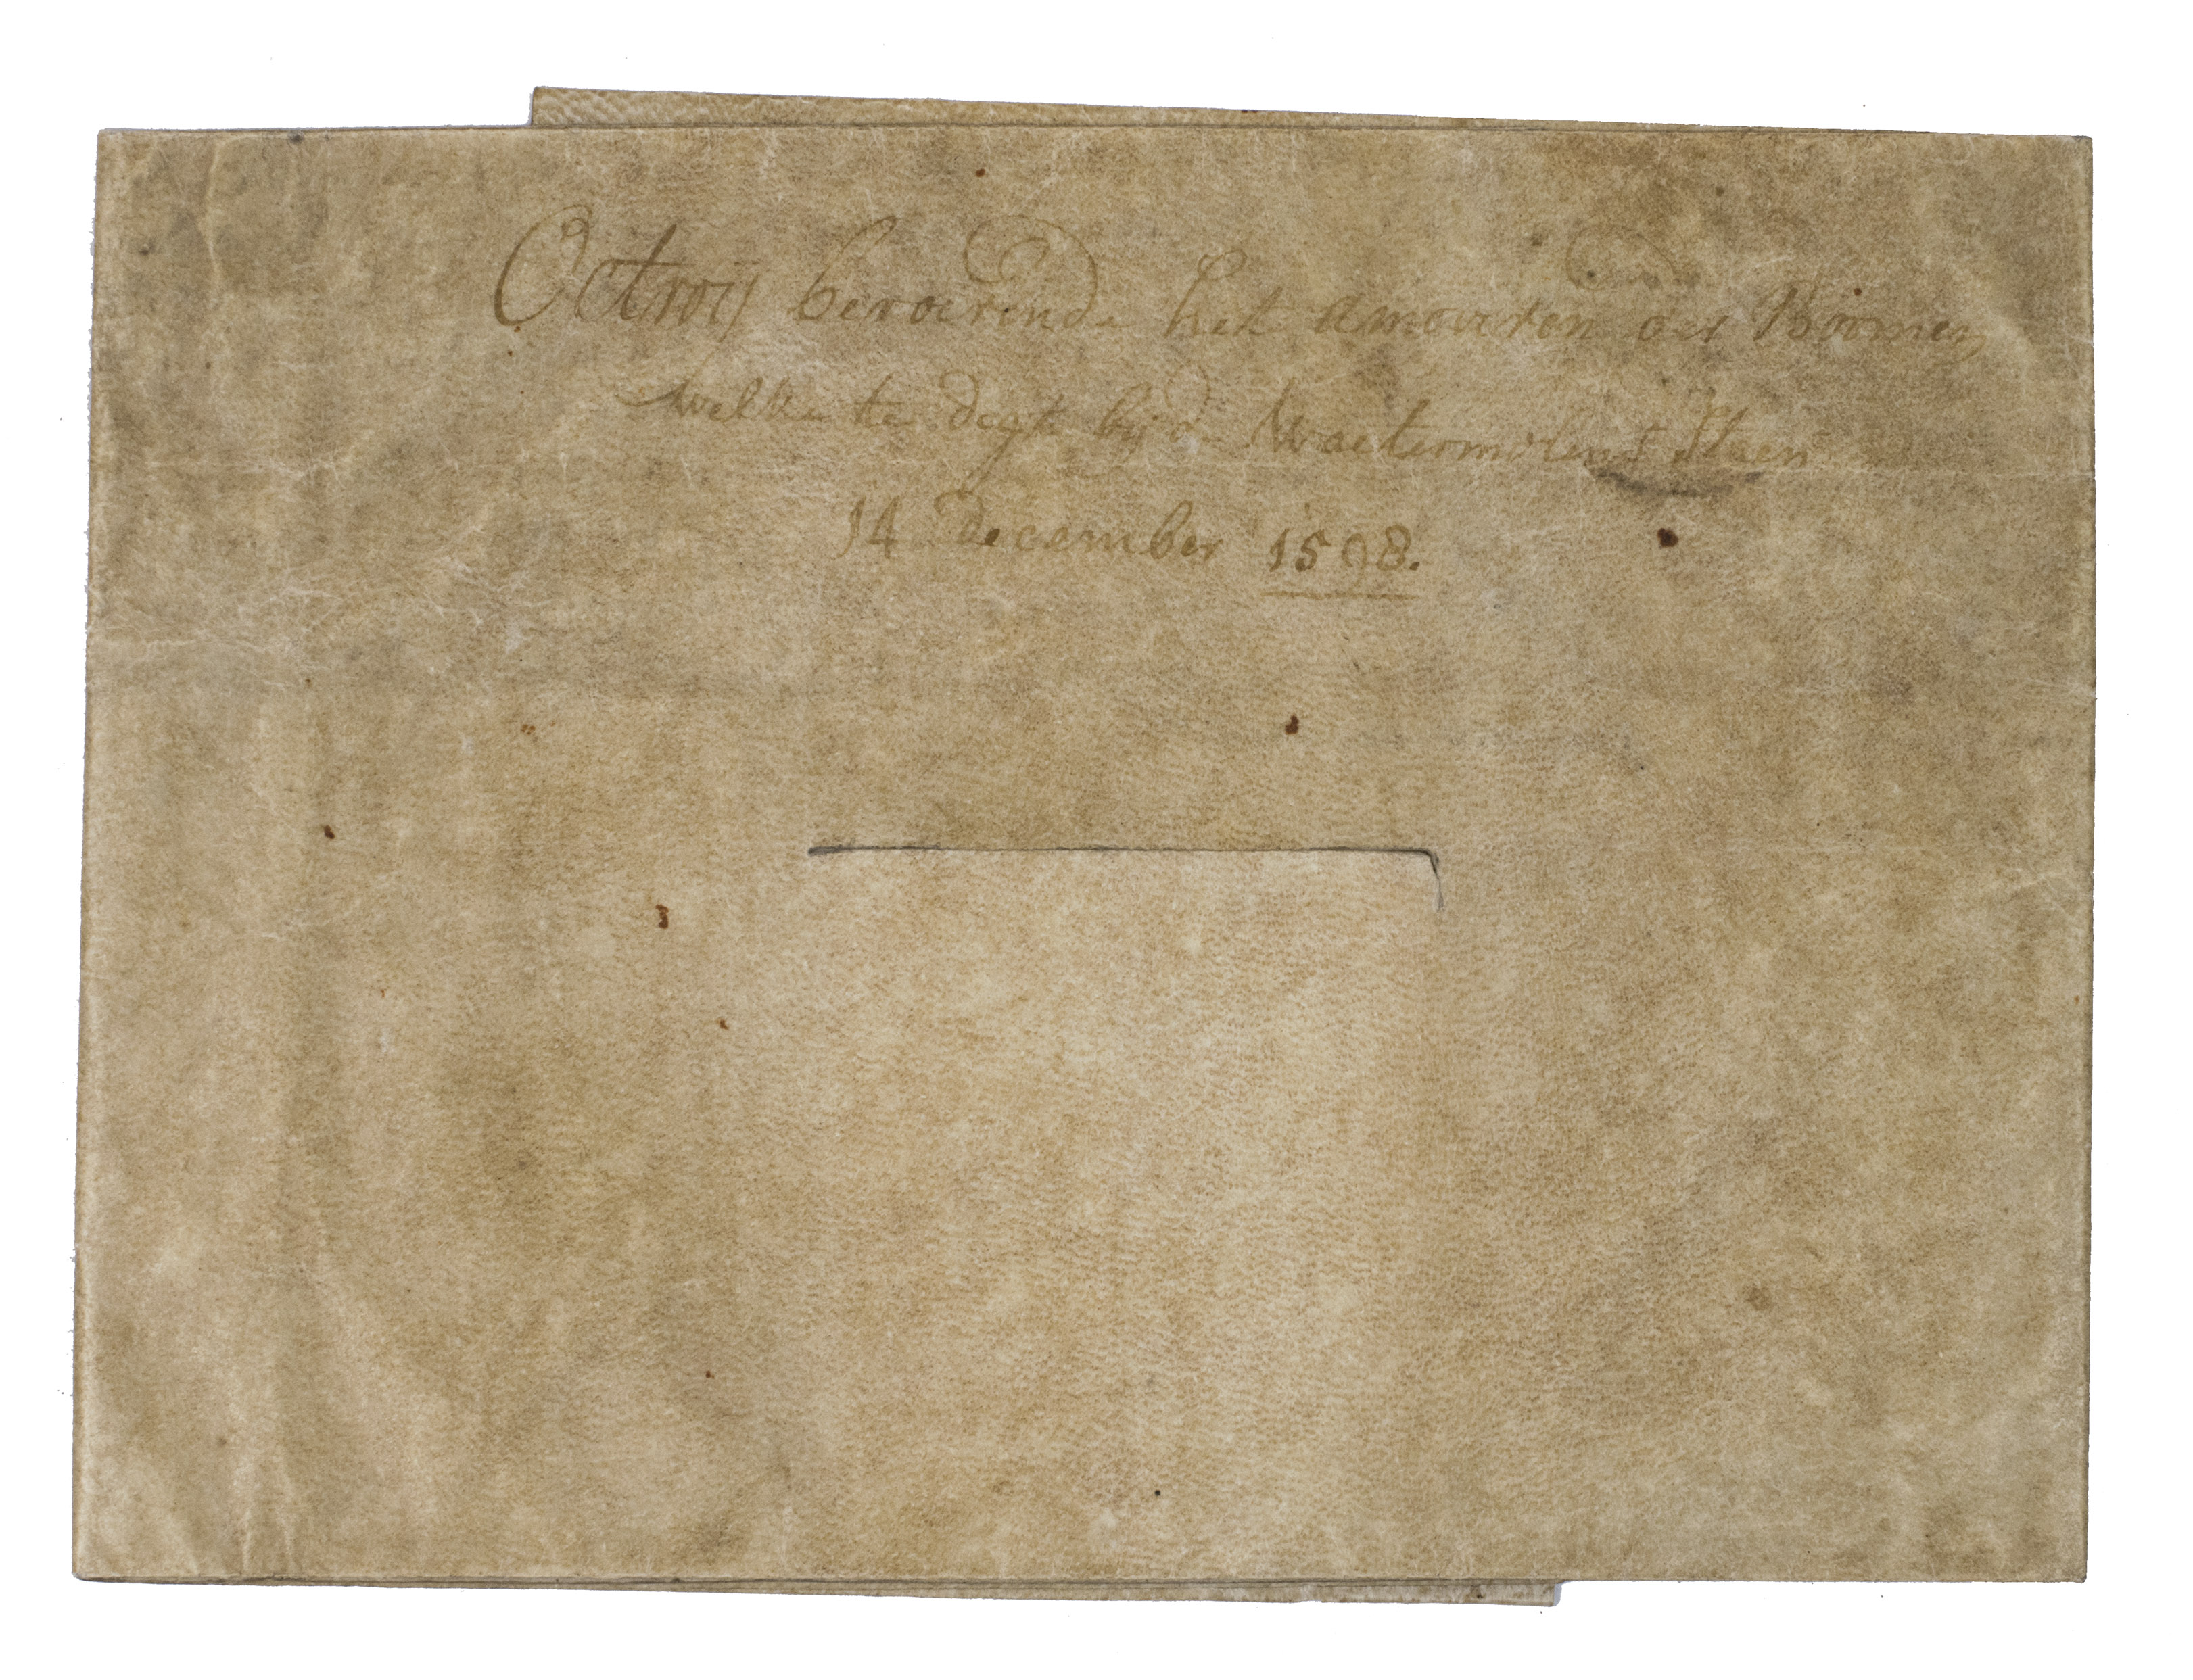 Octroij beroerende het amoveren der Boomen
welke te dege bij de Watermolens Staen
14 december 1598.